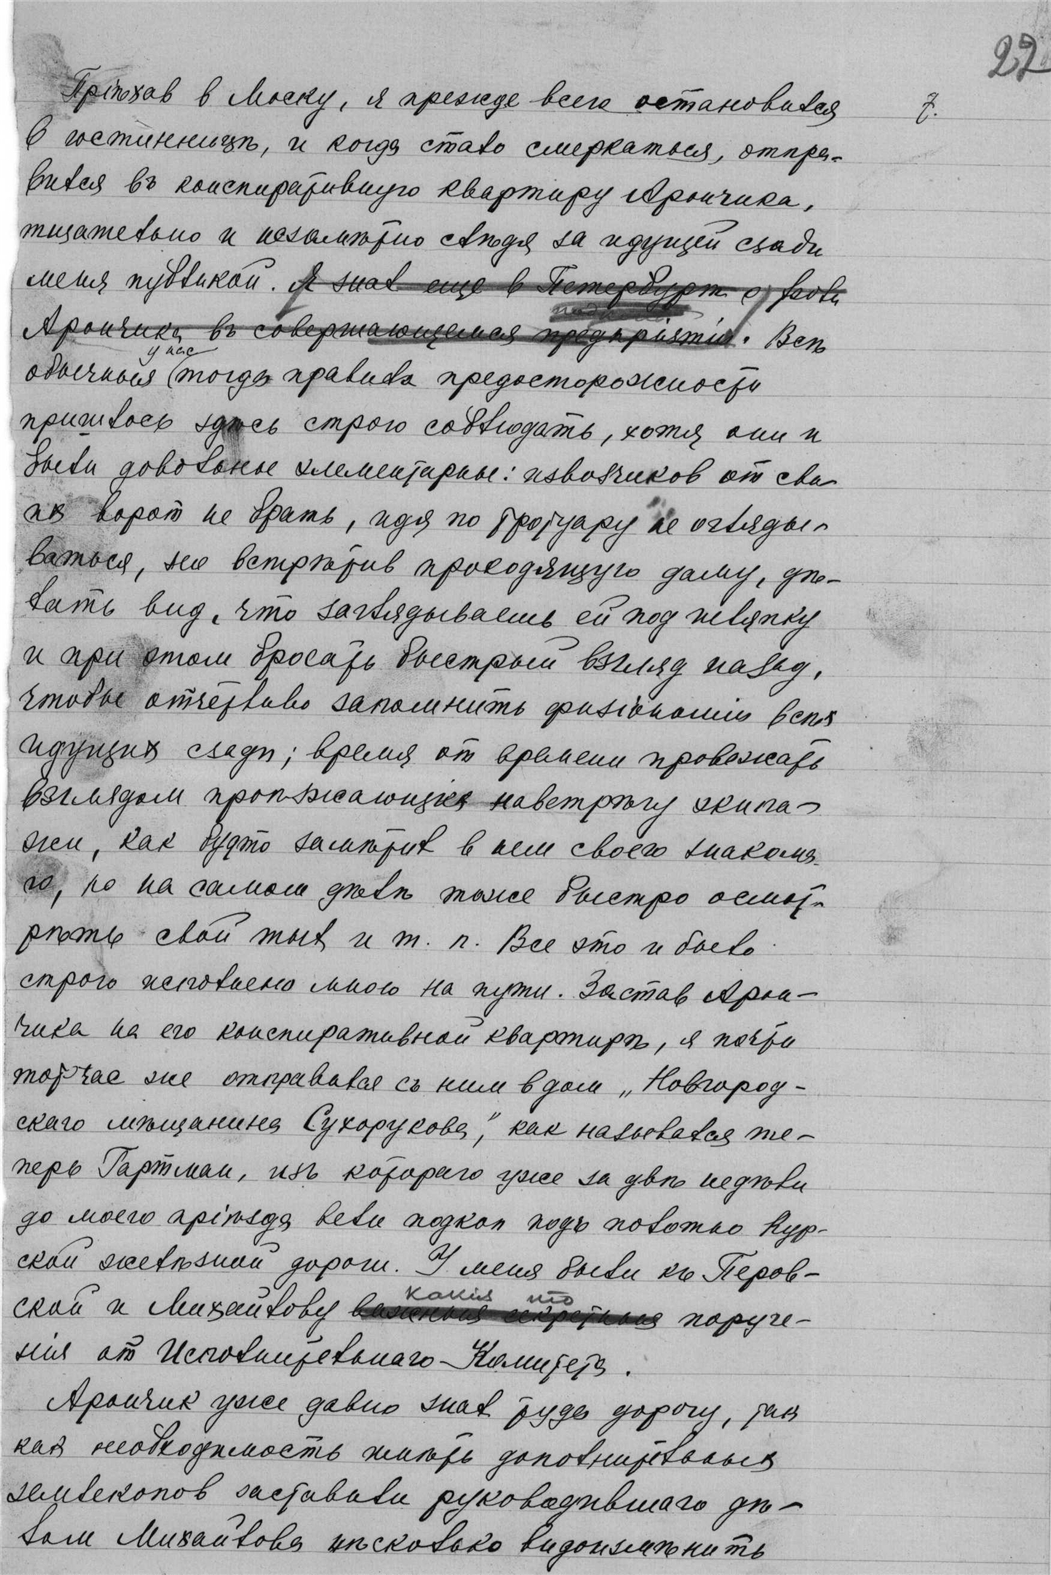 22
7.
Пріѣхав в Моску, я прежде всего остановился
в гостинницѣ, и когда стало смеркаться, отпра-
вился въ конспиративную квартиру Арончика,
тщательно и незамѣтно слѣдя за идущей сзади
меня публикой. Я знал еще в Петербургѣ о роли
Арончика въ совершающемся предпріятіи. Всѣ
у нас
обычныя тогда правила предосторожности
пришлось здѣсь строго соблюдать, хотя они и
были довольные элементарные: извозчиков от сво-
их ворот не брать, идя по тротуару не огляды-
ваться, но встрѣтив проходящую даму, дѣ-
лать вид, что заглядываешь ей под шляпку
и при этом бросать быстрый взгляд назад,
чтобы отчетливо запомнить физіономіи всѣх
идущих сзади; время от времени провожать
взглядом проѣзжающіе навстрѣчу экипа-
жи, как будто замѣтил в нем своего знакома-
го, но на самом дѣлѣ тоже быстро осмот-
рѣть свой тыл и т. п. Все это и было
строго исполнено мною на пути. Застав Арон-
чика на его конспиративной квартирѣ, я почти
тотчас же отправился съ ним в дом „Новгород-
скаго мѣщанина Сухорукова", как назывался те-
перь Гартман, изъ котораго уже за двѣ недѣли
до моего пріѣзда вели подкоп подъ полотно Кур-
ской желѣзной дороги. У меня были къ Перов-
какія то
ской и Михайлову важныя секретныя поруче-
нія от Исполнительнаго Комитета.
Арончик уже давно знал туда дорогу, так
как необходимость имѣть дополнительных
землекопов заставила руководившаго дѣ-
лом Михайлова нѣсколько видоизмѣнить